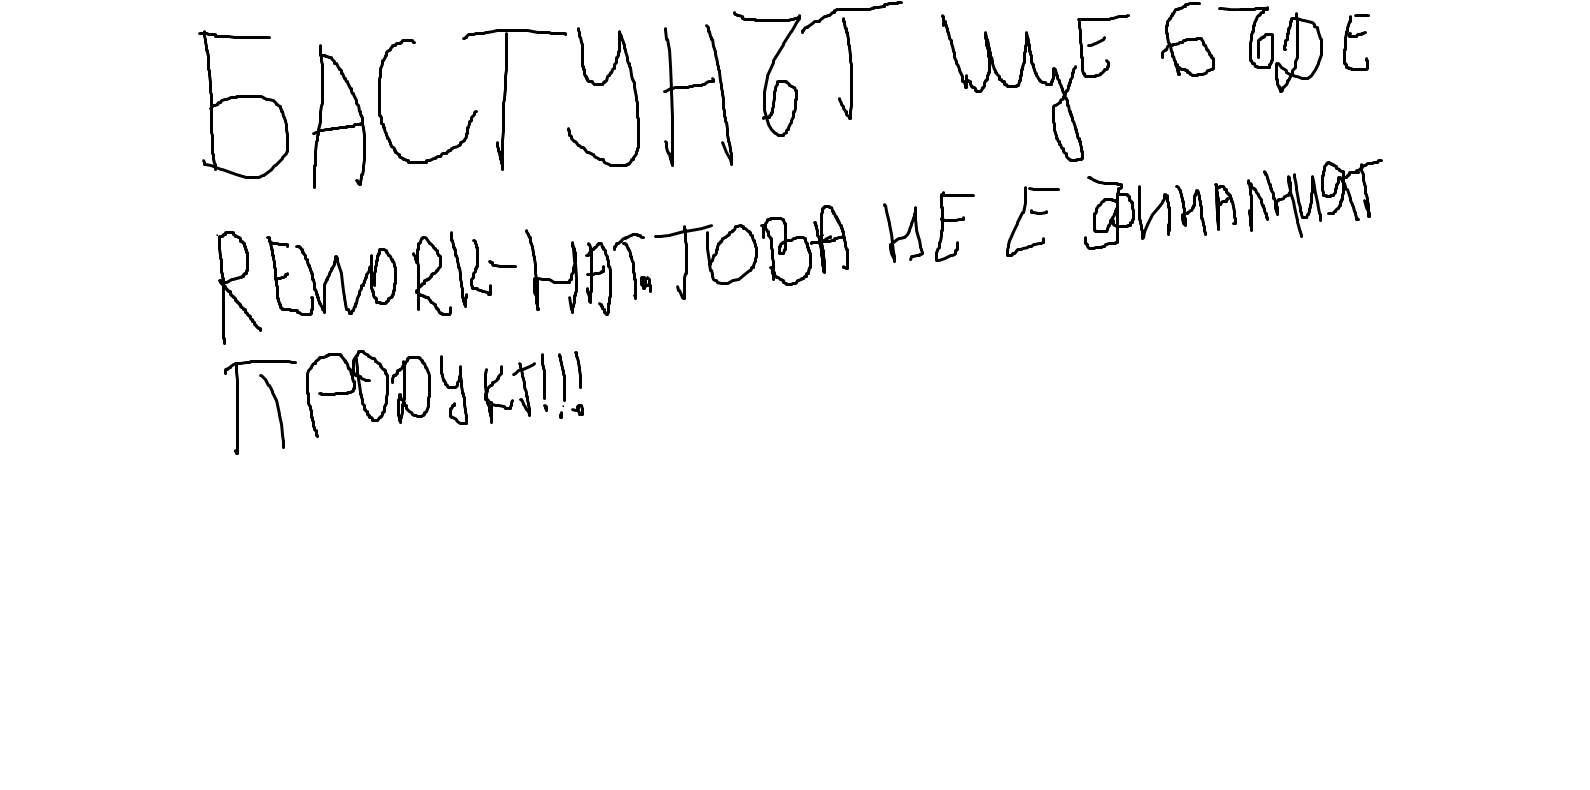 БАСТУНЪТ ЩЕ БЪДЕ
REWORK-НАТ.ТОВА НЕ Е ФИНАЛНИЯТ
ПРОДУКТ!!!